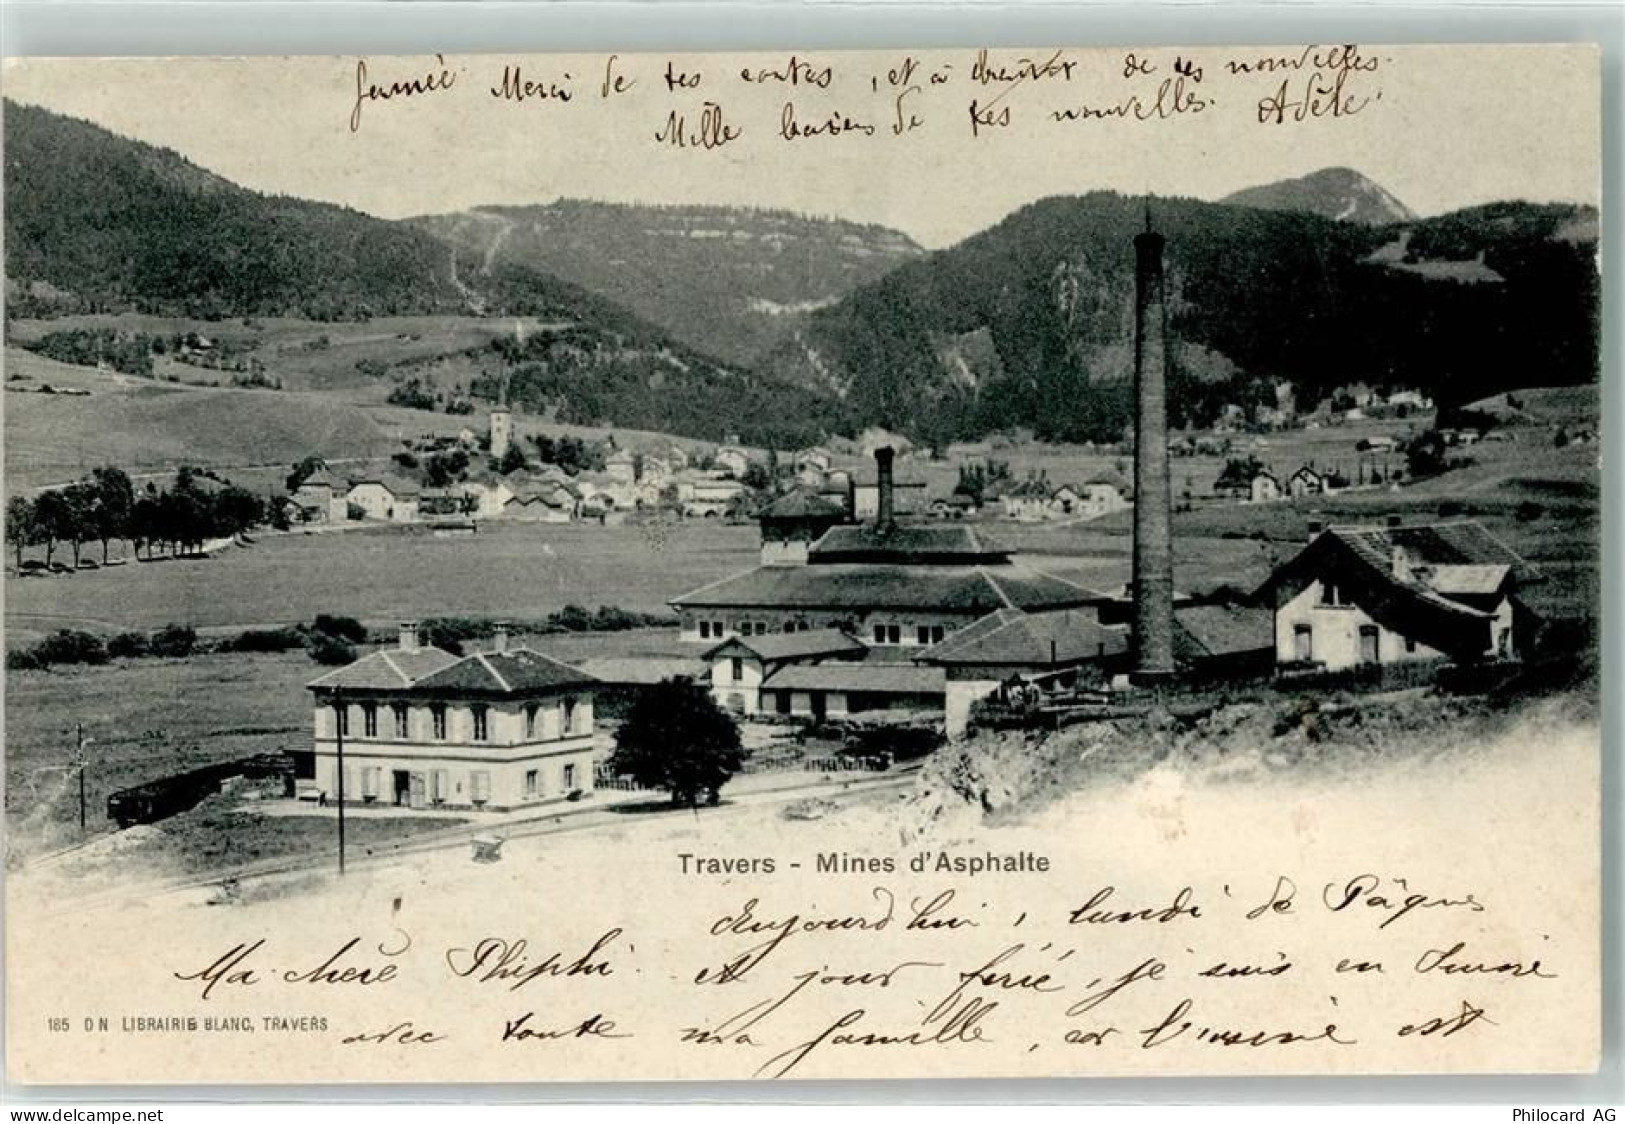 fermée. Merci de tes cartes, et à bientôt de tes nouvelles.
Mille baisers de tes nouvelles. Adèle.
Travers - Mines d'Asphalte
Aujourd'hui, lundi de Pâques
Ma chère Phiphi. et jour férié, je suis en
185 D N LIBRAIRIE BLANC, TRAVERS
avec toute ma famille, car l'usine est
www.delcampe.net
Philocard AG